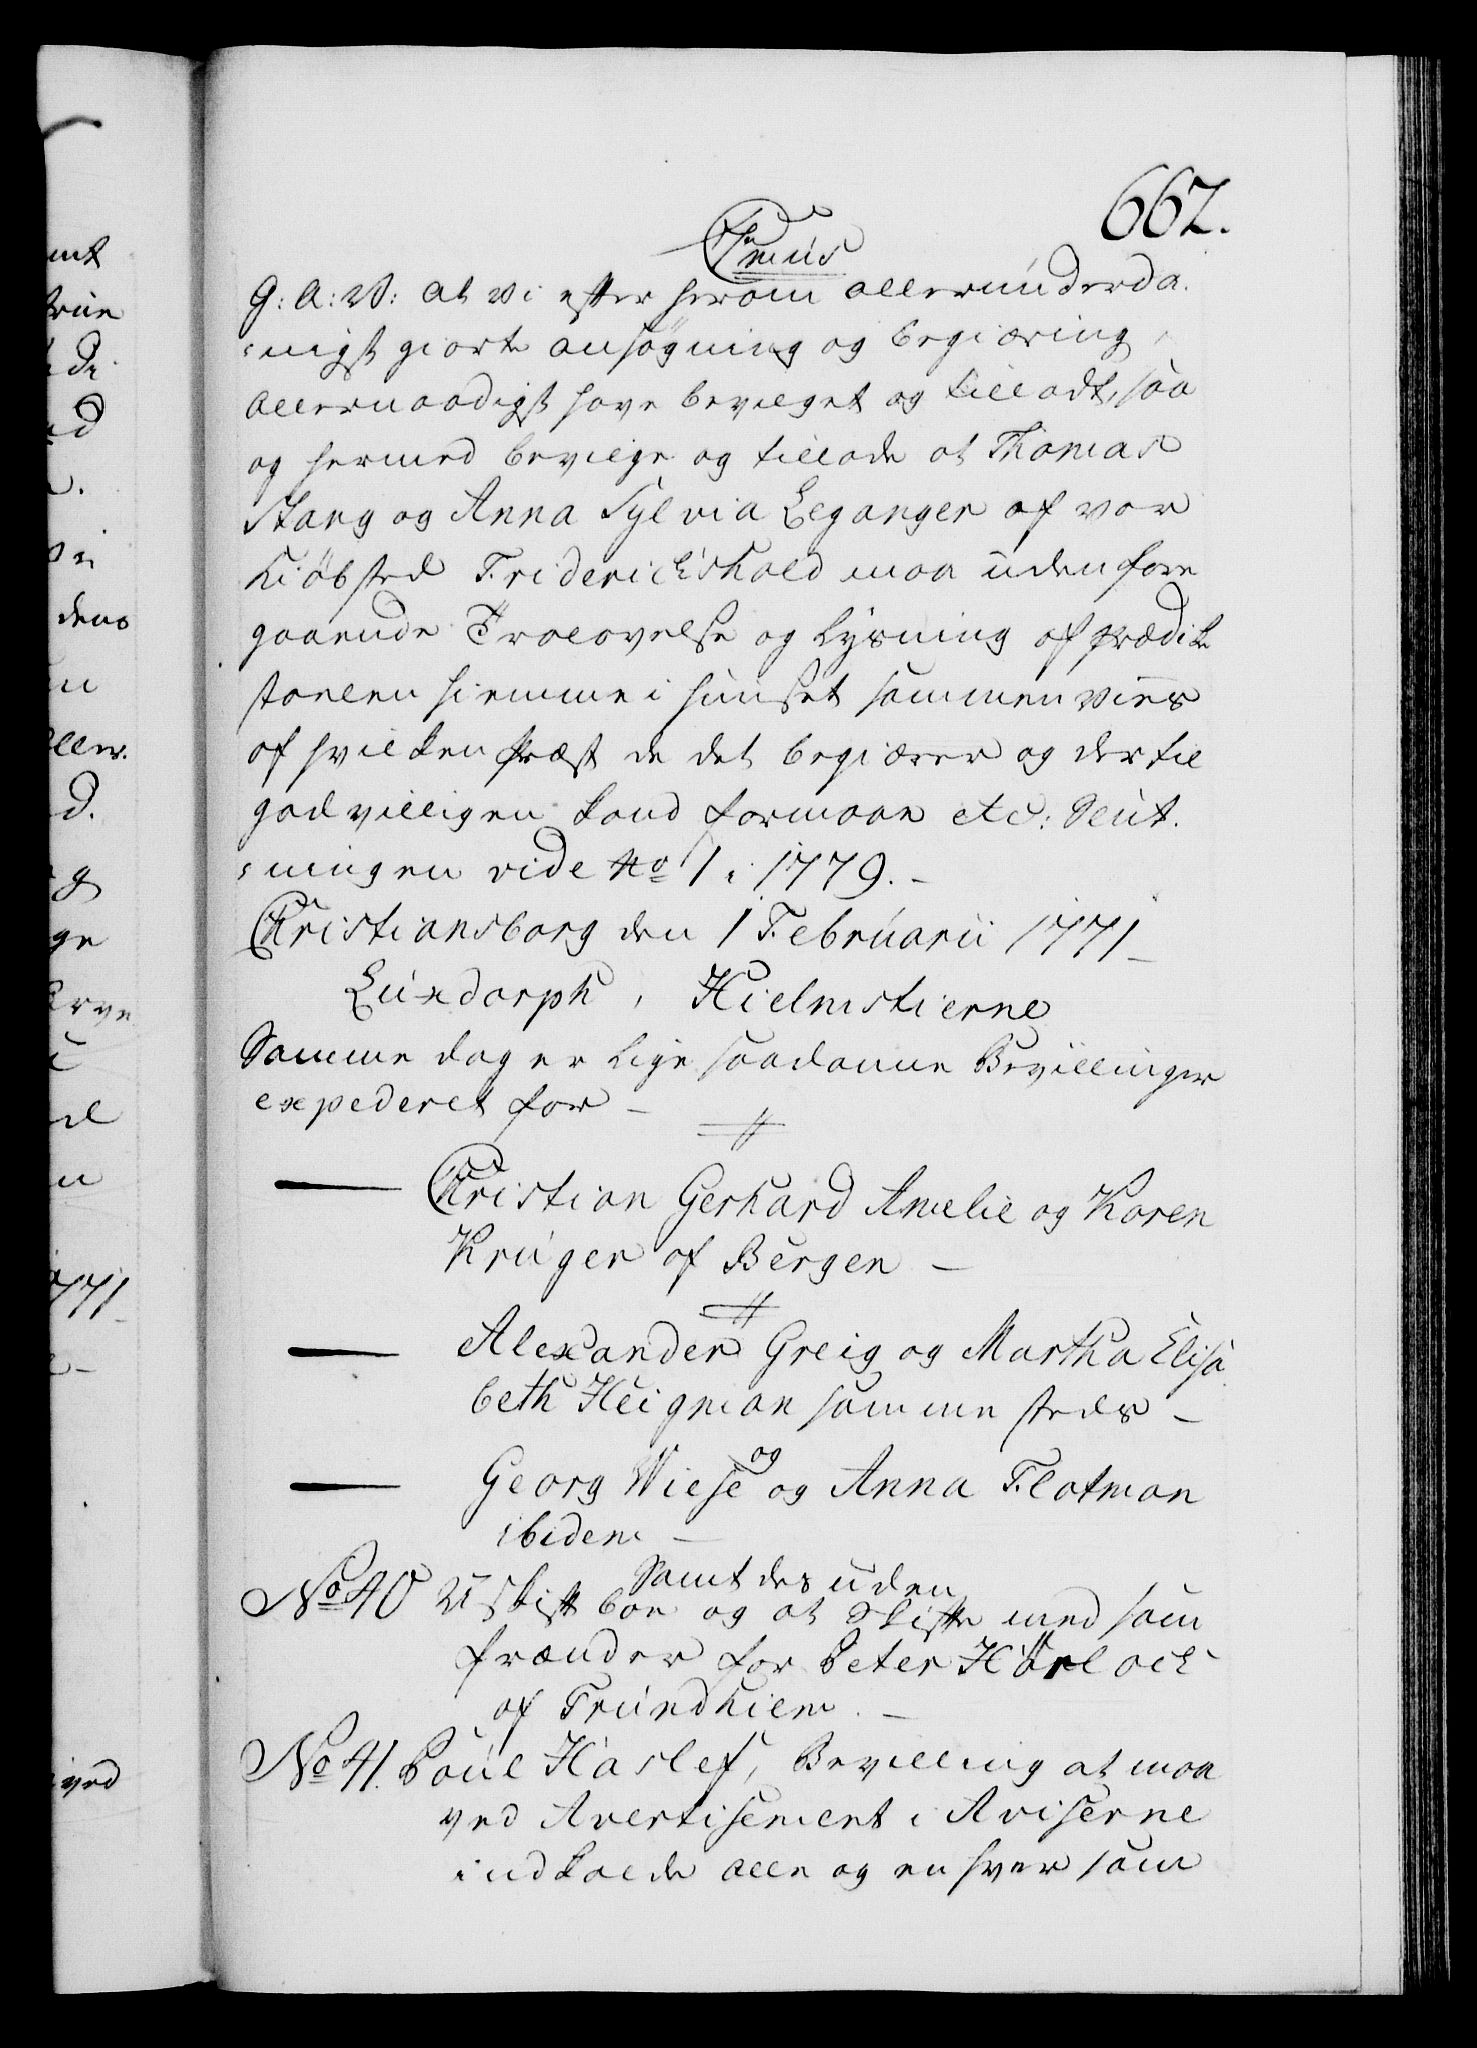 662.
G: A: V: at Vi efter herom allerunderda.
:nigst giorte ansøgning og begiæring,
allernaadigst have bevilget og tilladt, saa
og hermed bevilge og tillade at Thomas
Stang og Anna Sylvia Leganger af vor
Kiöbsted Friderichshald maa uden fore
gaaende Trolovelse og Lysning af Prædike
stoelen hiemme i huuset sammenvies
af hvilken Præst de det begiærer og dertil
godvilligen kand formaae etc: Slut.
:ningen vide No 1 i 1779.-
Christiansborg den 1 Februarii 1771_
Luxdorph, Hielmstierne
Samme dag er lige saadanne Bevillinger
expederet for -
Christian Gerhard Amelie og Karen
Krüger af Bergen -
Alexander Greig og Martha Elisa
beth Heigman samme steds -
og
Georg Wiese og Anna Flotman
ibidem -
Samt des uden
No 40 Uskift boe og at skifte med sam
frænder for Peter Hörlock
af Trundhiem. -
No 41. Poul Haslef, Bevilling at maa
ved Avertisement i Aviserne
indkalde alle og en hver som